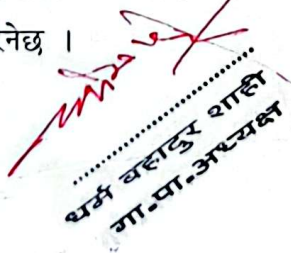 नेछ ।
धर्म बहादुर शाही
गा.पा.अध्यक्ष